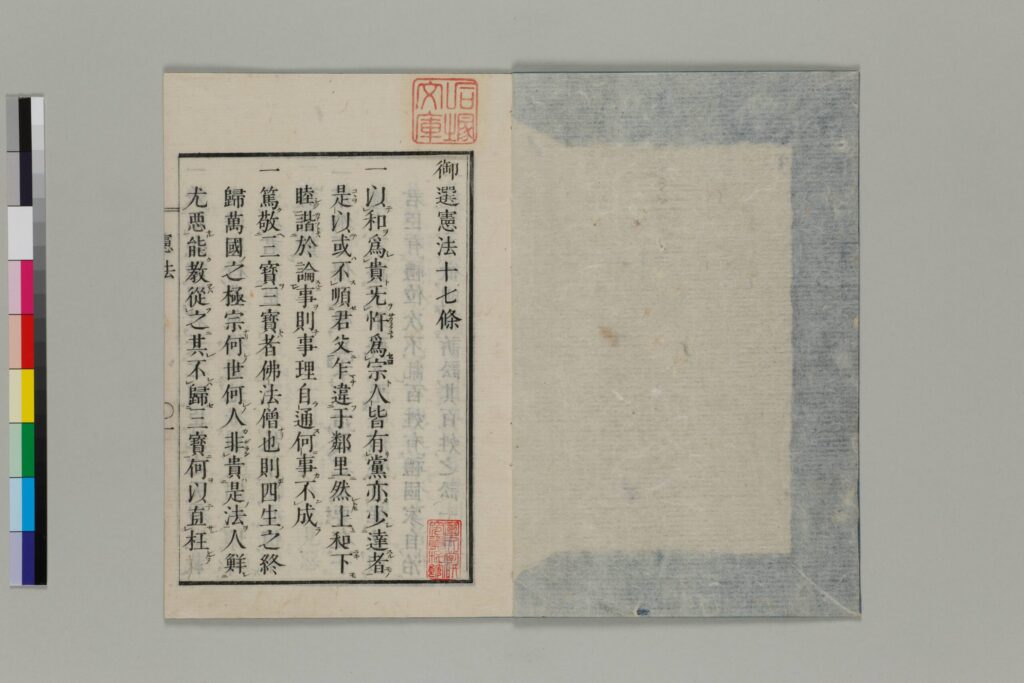 御選憲法十七條
一以和爲貴无忤爲宗人皆有黨亦少達者
是以或不順君父乍違于鄰里然上和下
睦諧於論事則事理自通何事不成
一篤敬三寶三寶者佛法僧也則四生之終
歸萬國之極宗何世何人非貴是法人鮮
尤惡能教從之其不歸三寶何以直枉
憲法
一
石塚
文庫